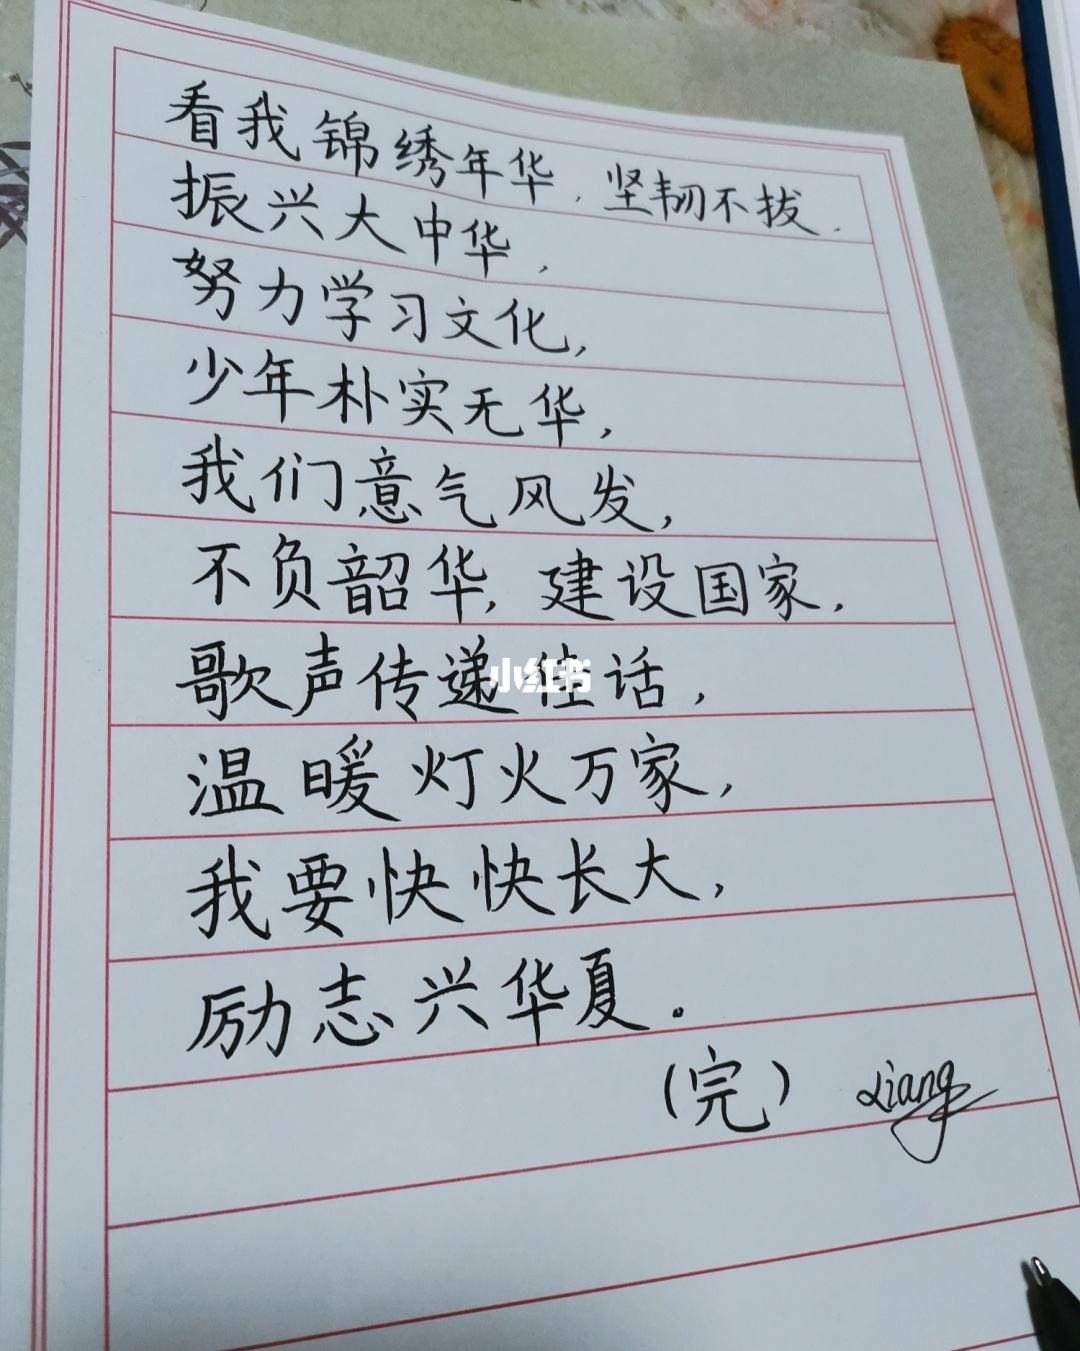 看我锦绣年华，坚韧不拔，
振兴大中华，
努力学习文化，
少年朴实无华，
我们意气风发，
不负韶华，建设国家，
歌声传递佳话，
小红书
温暖灯火万家，
我要快快长大，
励志兴华夏。
（完） Liang